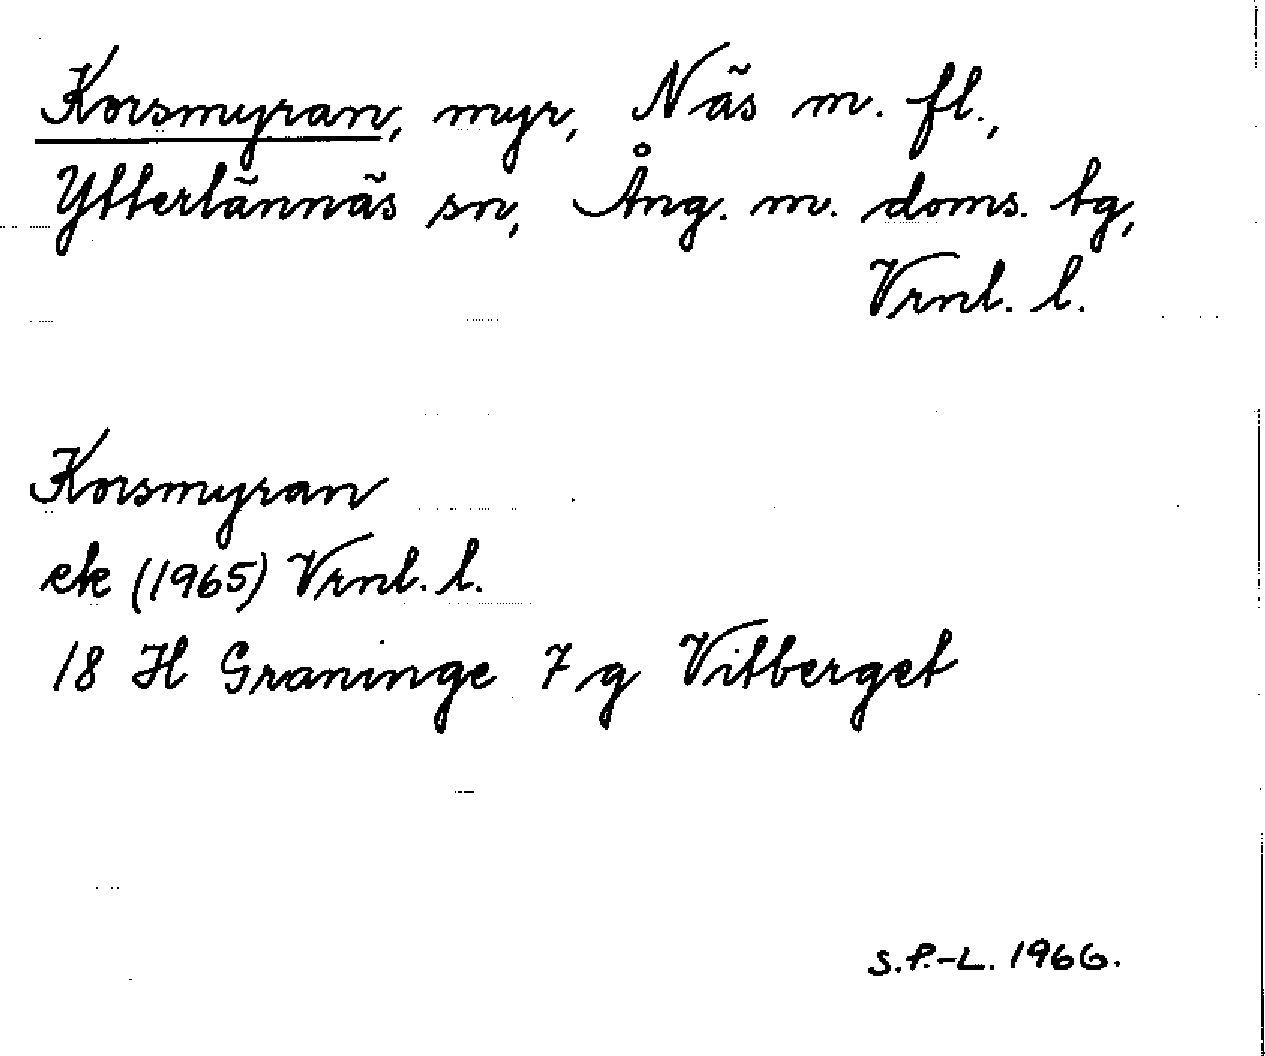 Korsmyran, myr, Näs m. fl.,
Ytterlännäs sn, Ång. m. doms. tg,
Vrnl. l.
Korsmyran
ek (1965) Vrnl. l.
18 H Graninge 7 g Vitberget
S.P.-L. 1966.